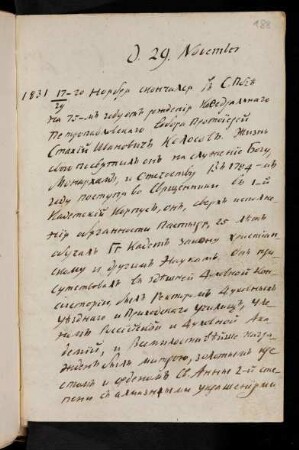 D. 29. November
1831 17-го Ноября скончался въ С.Пбѣ
29
на 75-мъ году отъ рожденія Каѳедральнаго
Петропавловскаго Собора Протоіерей
Стахій Ивановичъ Колосовъ. Жизнь
свою посвятилъ онъ на служеніе Богу,
Монархамъ, и Отечеству. Въ 1784-мъ
году поступя во Священники въ 1-й
Кадетскій Корпусъ, онъ, сверхъ исполне-
нія обязанности Пастыря, 25 лѣтъ
обучалъ Гг. Кадетъ закону Христіан-
скому и другимъ Наукамъ. Онъ при-
сутствовалъ въ здѣшней Духовной Кон-
систоріи, былъ Ректоромъ Духовныхъ
Уѣзднаго и Приходскаго Училищъ, Чле-
номъ Россійской и Духовной Ака-
демій, и Всемилостивѣйше награ-
жденъ былъ митрою, золотымъ кре-
стомъ и орденомъ Св. Анны 2-й сте-
пени съ алмазными украшеніями